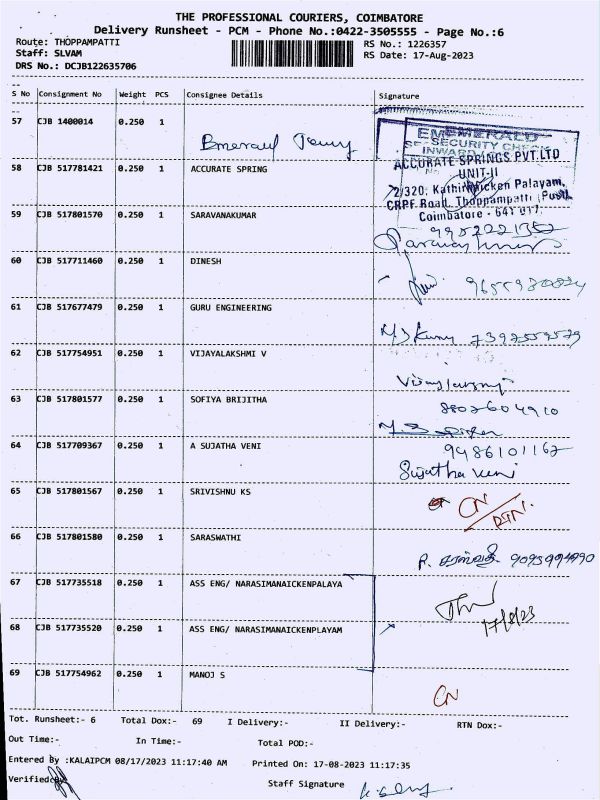 THE PROFESSIONAL COURIERS, COIMBATORE
Delivery Runsheet - PCM - Phone No.:0422-3505555 - Page No.:6
Route: THOPPAMPATTI RS No.: 1226357
Staff: SLVAM RS Date: 17-Aug-2023
DRS No.: DCJB122635706
S No Consignment No Weight PCS Consignee Details Signature
57 CJB 1400014 0.250 1
EMERALD
SECURITY CHECK
INWARD
58 CJB 517781421 0.250 1 ACCURATE SPRING
ACCURATE SPRINGS PVT.LTD
UNIT-II
2/320, Kathirnaicken Palayam,
CRPF Road, Thoppampatti (Post),
Coimbatore - 641 017.
59 CJB 517801570 0.250 1 SARAVANAKUMAR
60 CJB 517711460 0.250 1 DINESH
61 CJB 517677479 0.250 1 GURU ENGINEERING
62 CJB 517754951 0.250 1 VIJAYALAKSHMI V
63 CJB 517801577 0.250 1 SOFIYA BRIJITHA
64 CJB 517709367 0.250 1 A SUJATHA VENI
9486101162
Sujatha veni
65 CJB 517801567 0.250 1 SRIVISHNU KS
CN
RTN.
66 CJB 517801580 0.250 1 SARASWATHI
67 CJB 517735518 0.250 1 ASS ENG/ NARASIMANAICKENPALAYA
17/8/23
68 CJB 517735520 0.250 1 ASS ENG/ NARASIMANAICKENPLAYAM
69 CJB 517754962 0.250 1 MANOJ S
CN
Tot. Runsheet:- 6 Total Dox:- 69 I Delivery:- II Delivery:- RTN Dox:-
Out Time:- In Time:- Total POD:-
Entered By :KALAIPCM 08/17/2023 11:17:40 AM Printed On: 17-08-2023 11:17:35
Verified By
Staff Signature